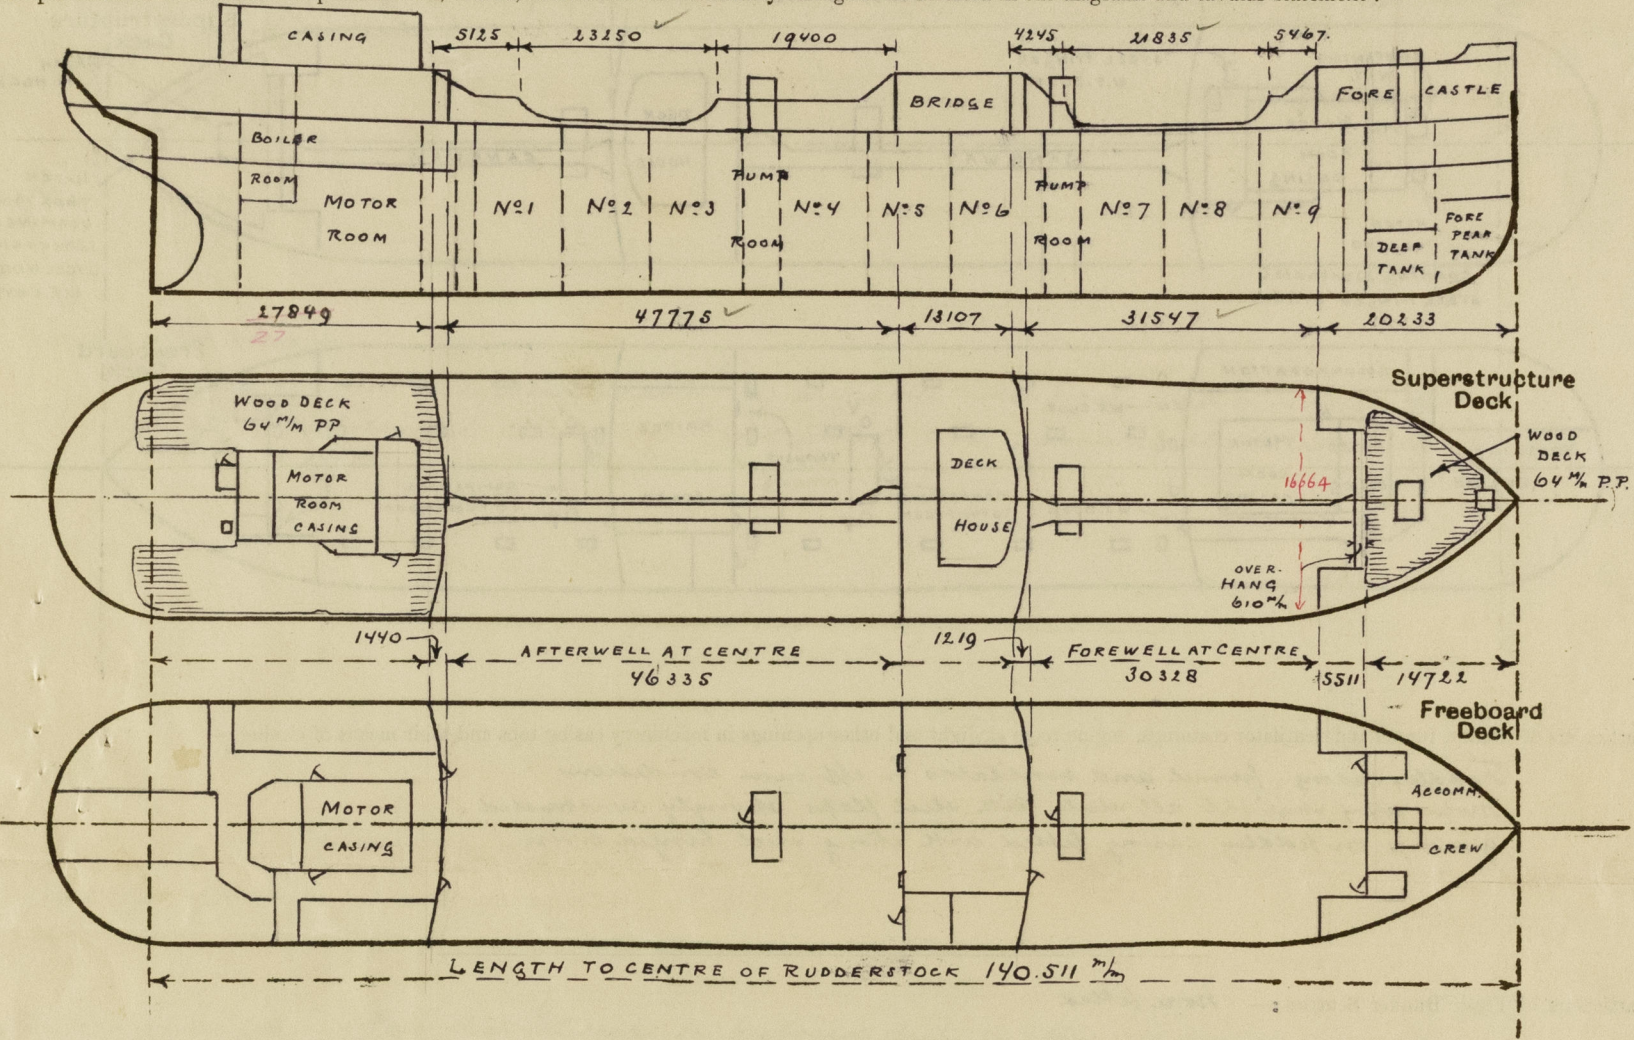 CASING
5125 23250 19400 4245 21835 5467.
BRIDGE
FORE CASTLE
BOILER
ROOM
MOTOR
ROOM
Nº1 Nº2 Nº3
PUMP
ROOM
Nº4 Nº5 Nº6
PUMP
ROOM
Nº7 Nº8 Nº9
DEEP
TANK
FORE
PEAK
TANK
27849 47775 13107 31547 20233
27
Superstructure
Deck
WOOD DECK
64 M/M PP
MOTOR
ROOM
CASING
DECK
HOUSE
16664
OVER-
HANG
610 m/m
WOOD
DECK
64 M/m P.P.
1440 1219
AFTERWELL AT CENTRE
46335
FOREWELL AT CENTRE
30328
5511 14722
Freeboard
Deck
MOTOR
CASING
ACCOMM.
CREW
LENGTH TO CENTRE OF RUDDERSTOCK 140.511 m/m